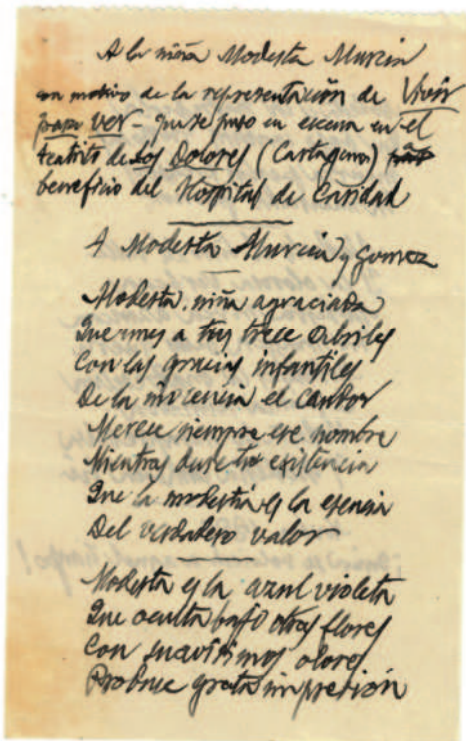 A la niña Modesta Murcia
con motivo de la representación de Vivir
para ver - que se puso en escena en el
teatrito de Los Dolores (Cartagena)
beneficio del Hospital de Caridad
A Modesta Murcia y Gomez
Modesta, niña agraciada
Que unes a tus trece Abriles
Con las gracias infantiles
De la inocencia el candor
Merece siempre ese nombre
Mientras dure tu existencia
Que la modestia es la esencia
Del verdadero valor
Modesta es la azul violeta
Que oculta bajo otras flores
Con suavísimos olores
Produce grata impresión